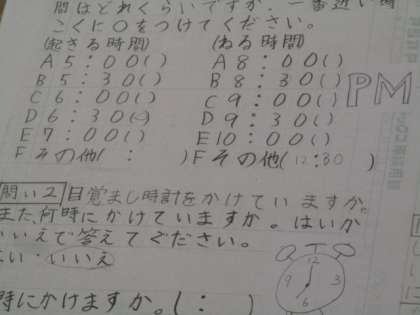 間はどれくらいですか。一番近い時
こくに○をつけてください。
(起きる時間) (ねる時間)
A 5:00( ) A 8:00( )
B 5:30( ) B 8:30( )
C 6:00( ) C 9:00( )
D 6:30( ) D 9:30( )
E 7:00( ) E 10:00( )
F その他( : ) F その他(12:30)
PM
問い2 目覚まし時計をかけていますか。
また、何時にかけていますか。はいか
いいえで答えてください。
はい・いいえ
時にかけますか。( : )
12
9 3
6